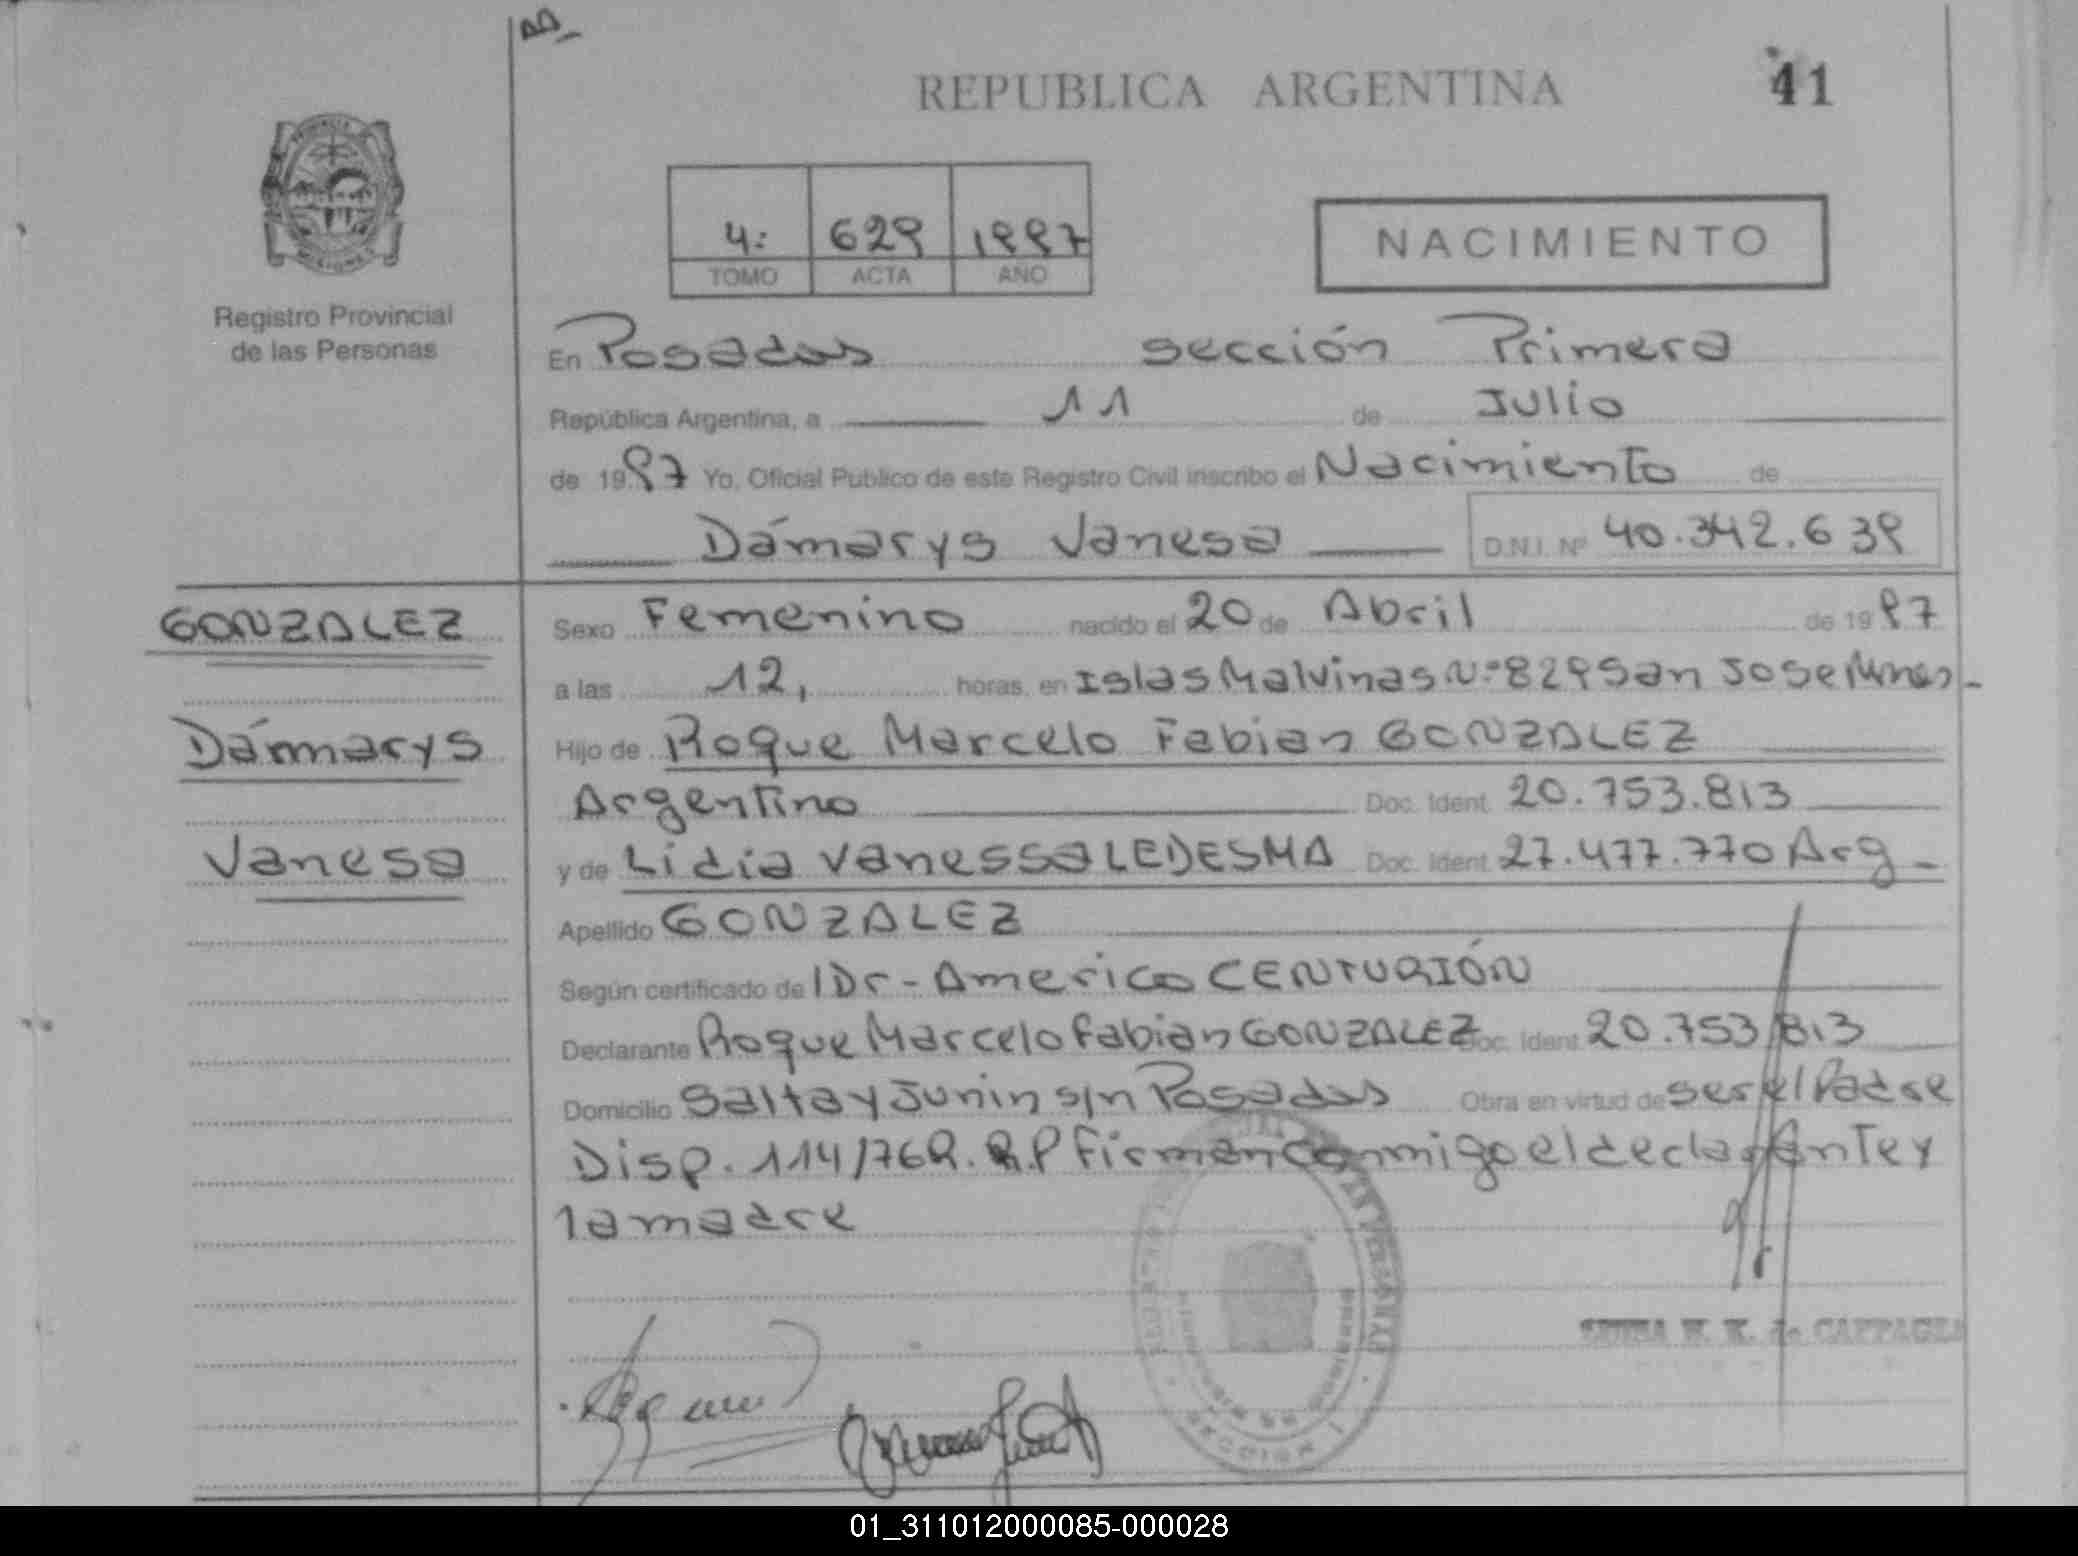 REPUBLICA ARGENTINA
41
4: 629 1997
TOMO ACTA AÑO
NACIMIENTO
Registro Provincial
de las Personas
En Posadas sección Primera
República Argentina, a 11 de Julio
de 1997 Yo, Oficial Publico de este Registro Civil inscribo el Nacimiento de
Dámarys Vanesa D.N.I. Nº 40.342.639
GONZALEZ
Dámarys
Vanesa
Sexo Femenino nacido el 20 de Abril de 1997
a las 12, horas, en Islas Malvinas Nº 829 San Jose Mnes -
Hijo de Roque Marcelo Fabian GONZALEZ
Argentino Doc. Ident. 20.753.813
y de Lidia Vanessa LEDESMA Doc. Ident. 27.477.770 Arg -
Apellido GONZALEZ
Según certificado de Dr - Americo CENTURIÓN
Declarante Roque Marcelo Fabian GONZALEZ Doc. Ident. 20.753.813
Domicilio Salta y Junin s/n Posadas Obra en virtud de ser el Padre
Disp. 114/76 R.R.P Firman conmigo el declarante y
la madre
SECCION 1
01_311012000085-000028